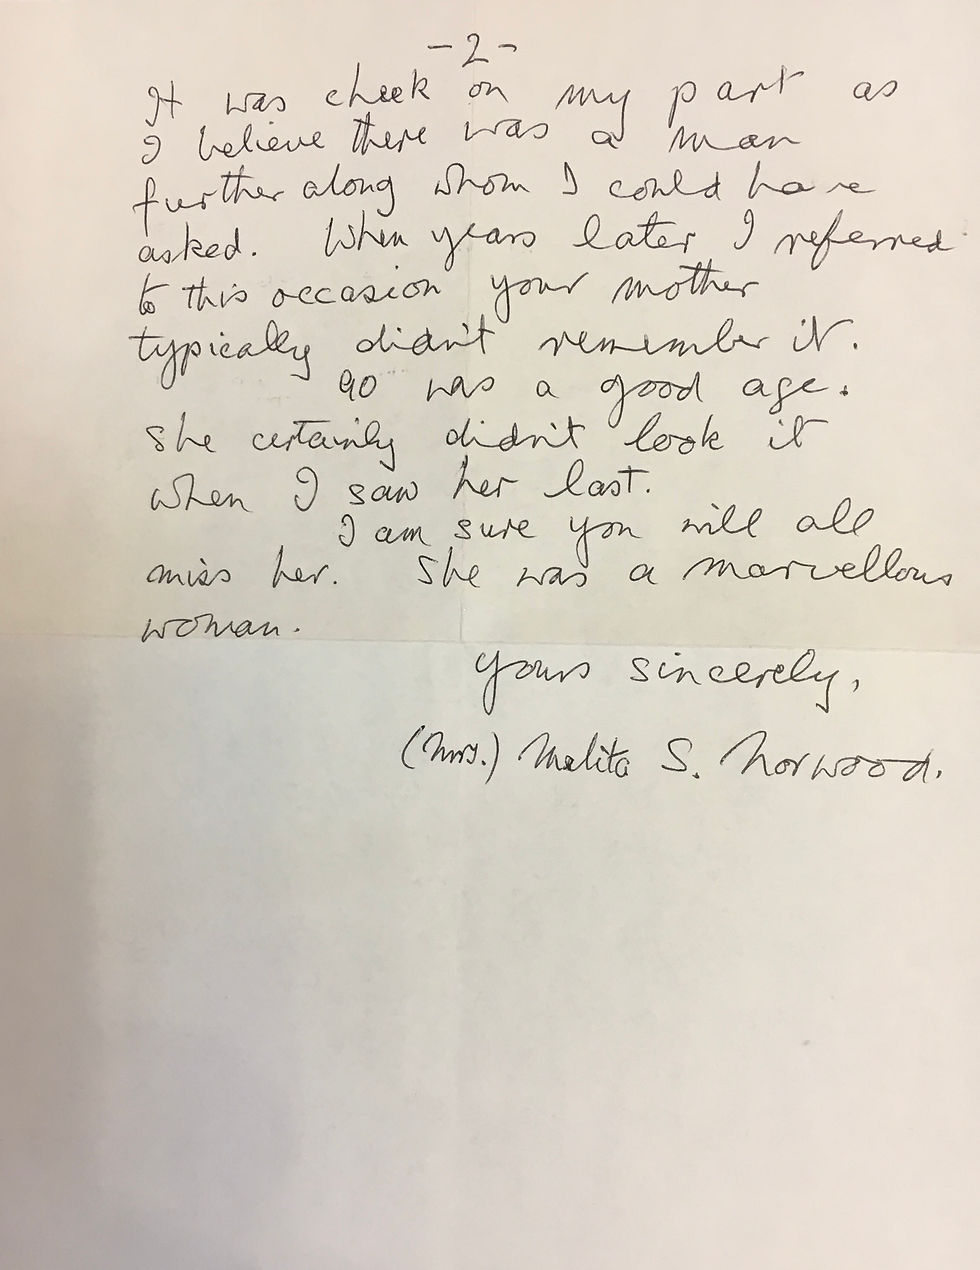 -2-
It was cheek on my part as
I believe there was a man
further along whom I could have
asked. When years later I referred
to this occasion your mother
typically didn't remember it.
90 was a good age.
She certainly didn't look it
when I saw her last.
I am sure you will all
miss her. She was a marvellous
woman.
Yours sincerely,
(Mrs.) Melita S. Norwood.